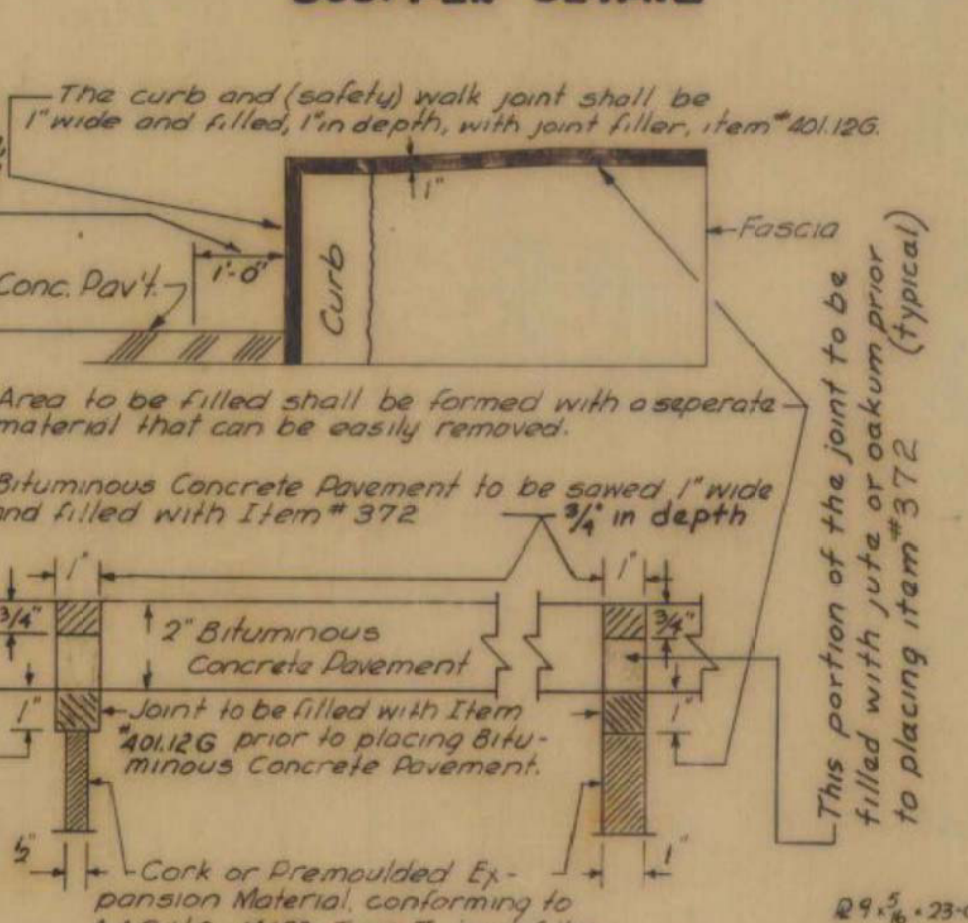 The curb and (safety) walk joint shall be
1" wide and filled, 1" in depth, with joint filler, item #401.12G.
1"
Fascia
1'-0"
Conc. Pav't.
Curb
Area to be filled shall be formed with a seperate
material that can be easily removed.
Bituminous Concrete Pavement to be sawed 1" wide
and filled with Item # 372
3/4" in depth
1"
1"
3/4"
3/4"
2" Bituminous
Concrete Pavement
1"
1"
Joint to be filled with Item
#401.12G prior to placing Bitu-
minous Concrete Pavement.
1/2"
1"
Cork or Premoulded Ex-
pansion Material, conforming to
This portion of the joint to be
filled with jute or oakum prior
to placing item #372 (typical)